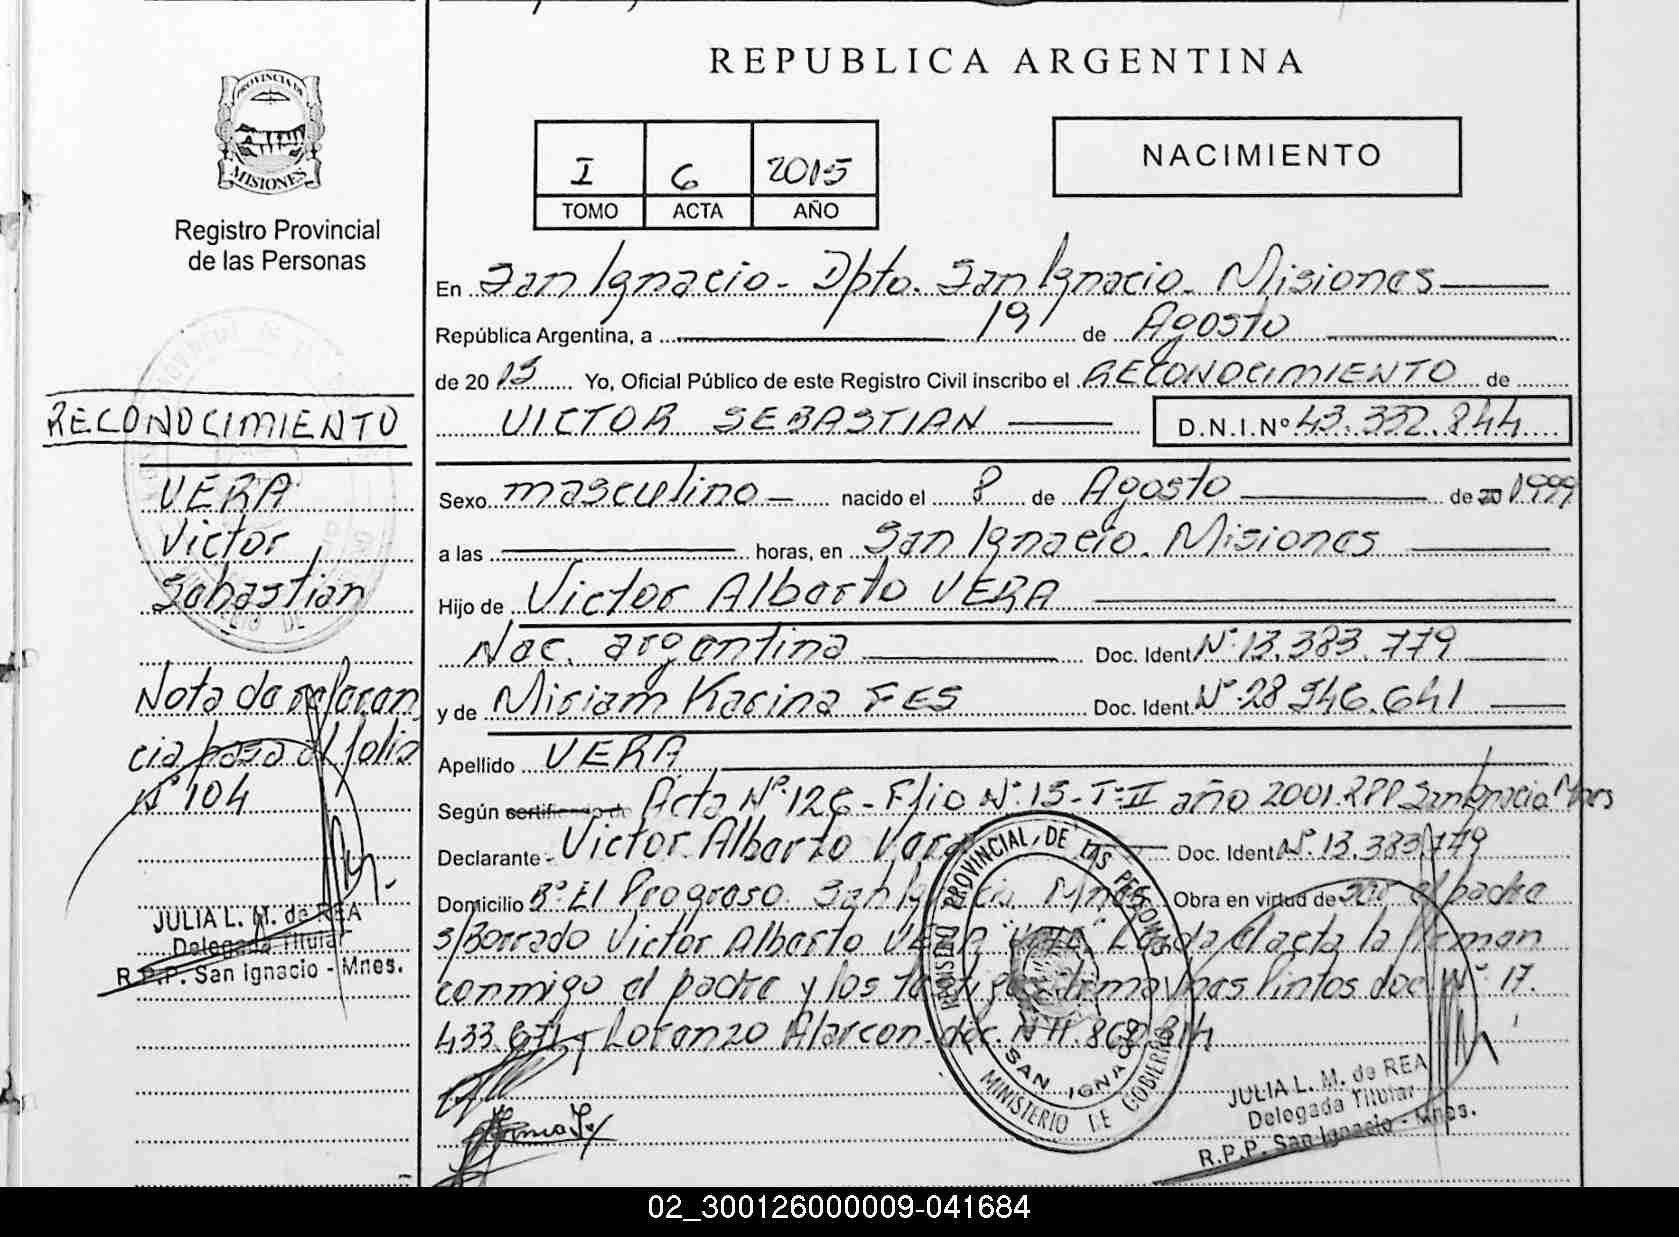 REPUBLICA ARGENTINA
PROVINCIA DE
MISIONES
Registro Provincial
de las Personas
I 6 2015
TOMO ACTA AÑO
NACIMIENTO
En San Ignacio - Dpto. San Ignacio - Misiones
República Argentina, a 19 de Agosto
de 2015 Yo, Oficial Público de este Registro Civil inscribo el RECONOCIMIENTO de
VICTOR SEBASTIAN D.N.I.Nº 43.332.844
Sexo masculino nacido el 8 de Agosto de 20 1999
a las horas, en San Ignacio. Misiones
Hijo de Victor Alberto VERA
Nac. argentina Doc. Ident. Nº 13.383.779
y de Miriam Karina FES Doc. Ident. Nº 28.946.641
Apellido VERA
Según certificado de Acta Nº 126 - Flio Nº 15 - Tº II año 2001. RPP San Ignacio Mnes
Declarante - Victor Alberto Vera Doc. Ident. Nº 13.383.779
Domicilio Bº El Progreso. San Ignacio Mnes Obra en virtud de ser el padre
s/Borrado Victor Alberto VERA "Vale" Leida el acta la firman
conmigo el padre y los testigos Pintos doc Nº 17.
433.671 y Lorenzo Alarcon doc. Nº 11.868.814
RECONOCIMIENTO
VERA
Victor
Sebastian
Nota de referen
cia pasa al folio
Nº 104
JULIA L. M. de REA
Delegada Titular
R.P.P. San Ignacio - Mnes.
PROVINCIAL DE LAS PERSONAS
SAN IGNACIO
MINISTERIO DE GOBIERNO
JULIA L. M. de REA
Delegada Titular
R.P.P. San Ignacio - Mnes.
02_300126000009-041684